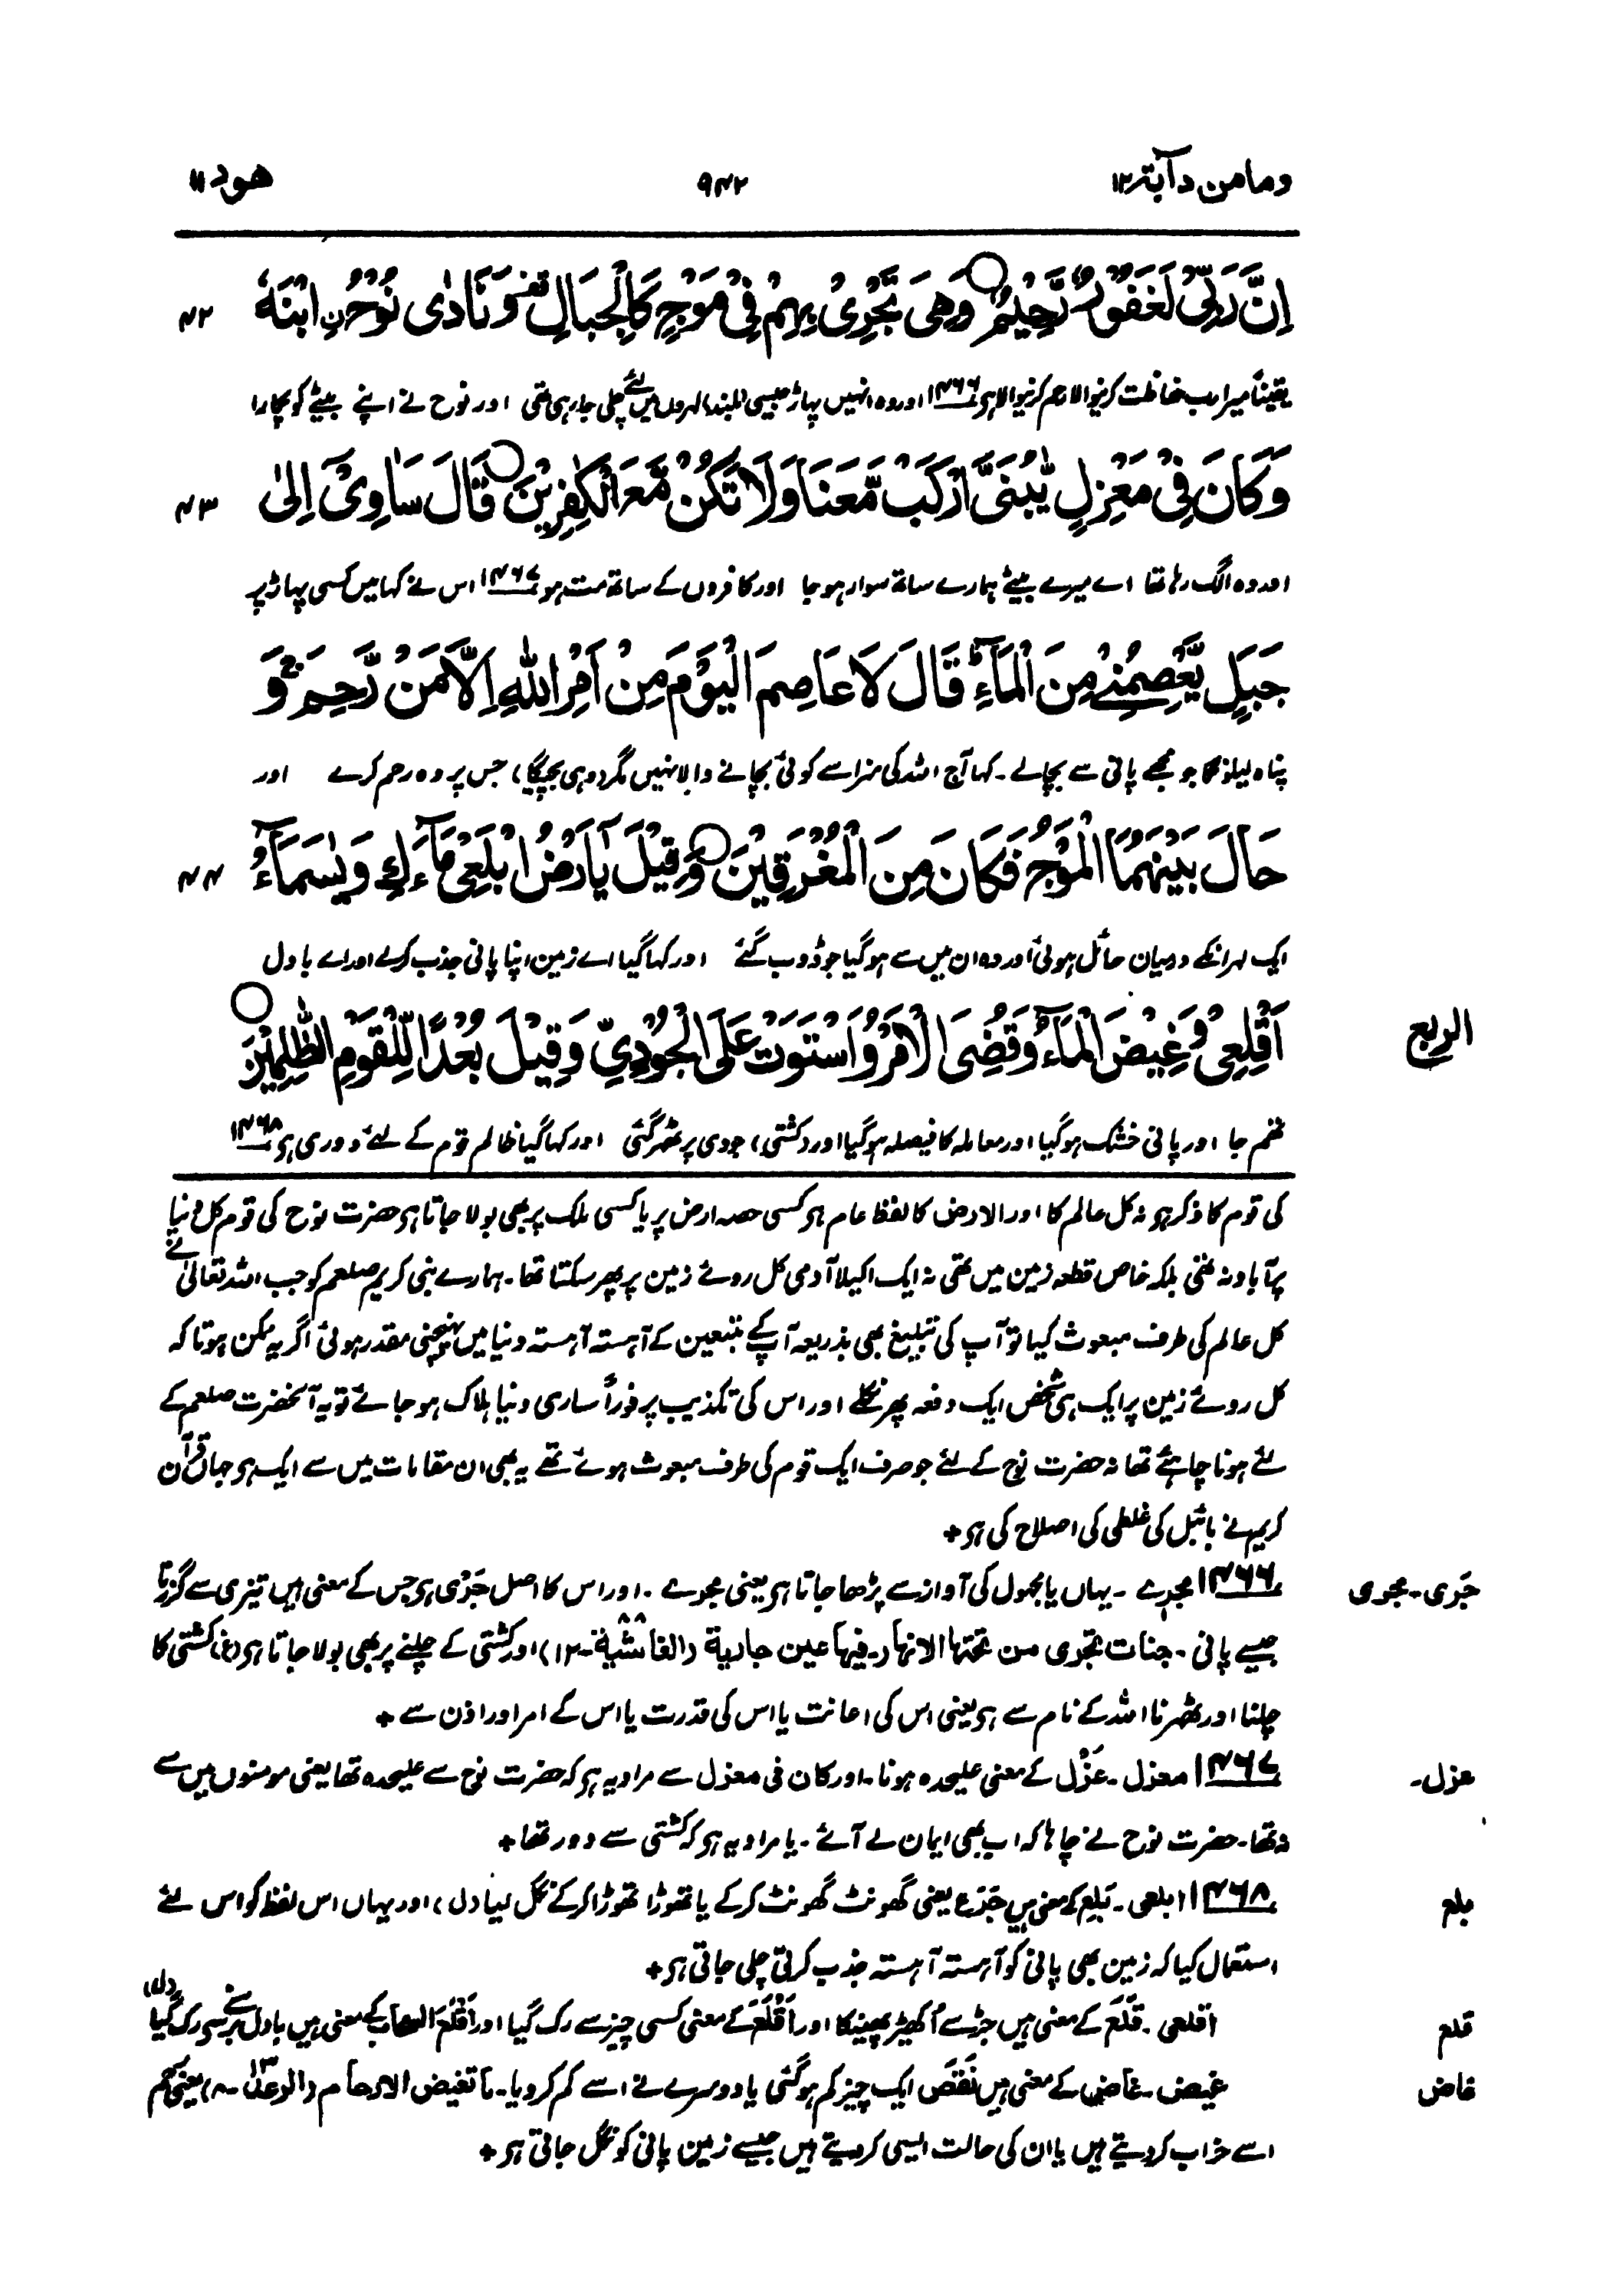 ومامن دآبة ۱۲
۹۴۲
ھود ۱۱
اِنَّ رَبِّیْ لَغَفُوْرٌ رَّحِیْمٌ ○ وَھِیَ تَجْرِیْ بِھِمْ فِیْ مَوْجٍ کَالْجِبَالِ قف وَنَادٰی نُوْحُ ۨ ابْنَهٗ
۴۲
یقیناً میرا رب حفاظت کرنیوالا رحم کرنیوالا ہی ۱۴۶۶ اور وہ انہیں پہاڑ جیسی (بلند) لہروں میں لئے چلی جا رہی تھی اور نوح نے اپنے بیٹے کو پکارا
وَکَانَ فِیْ مَعْزِلٍ یّٰبُنَیَّ ارْکَبْ مَّعَنَا وَلَا تَکُنْ مَّعَ الْکٰفِرِیْنَ ○ قَالَ سَاٰوِیْٓ اِلٰی
۴۳
اور وہ الگ رہا تھا اے میرے بیٹے ہمارے ساتھ سوار ہو جا اور کافروں کے ساتھ مت ہو ۱۴۶۷ اس نے کہا میں کسی پہاڑ پر
جَبَلٍ یَّعْصِمُنِیْ مِنَ الْمَآءِ ؕ قَالَ لَا عَاصِمَ الْیَوْمَ مِنْ اَمْرِ اللّٰهِ اِلَّا مَنْ رَّحِمَ ۚ وَ
پناہ لیلونگا جو مجھے پانی سے بچالے۔ کہا آج اللہ کی سزا سے کوئی بچانے والا نہیں مگر (وہی بچیگا) جس پر وہ رحم کرے اور
حَالَ بَیْنَهُمَا الْمَوْجُ فَکَانَ مِنَ الْمُغْرَقِیْنَ ○ وَقِیْلَ یٰٓاَرْضُ ابْلَعِیْ مَآءَكِ وَیٰسَمَآءُ
۴۴
ایک لہر انکے درمیان حائل ہوئی اور وہ ان میں سے ہو گیا جو ڈوب گئے اور کہا گیا اے زمین اپنا پانی جذب کرلے اور اے بادل
اَقْلِعِیْ وَغِیْضَ الْمَآءُ وَقُضِیَ الْاَمْرُ وَاسْتَوَتْ عَلَی الْجُوْدِیِّ وَقِیْلَ بُعْدًا لِّلْقَوْمِ الظّٰلِمِیْنَ ○
الربع
تھم جا اور پانی خشک ہو گیا اور معاملہ کا فیصلہ ہو گیا اور (کشتی) جودی پر ٹھہر گئی اور کہا گیا ظالم قوم کے لئے دوری ہی ۱۴۶۸
کی قوم کا ذکر ہی نہ کل عالم کا اور الارض کا لفظ عام ہی کسی حصہ ارض پر یا کسی ملک پر بھی بولا جاتا ہی حضرت نوح کی قوم کل دنیا
پر آباد نہ تھی بلکہ خاص قطعہ زمین میں تھی نہ ایک اکیلا آدمی کل روئے زمین پر پھر سکتا تھا۔ ہمارے نبی کریم صلعم کو جب اللہ تعالیٰ نے
کل عالم کی طرف مبعوث کیا تو آپ کی تبلیغ بھی بذریعہ آپ کے متبعین کے آہستہ آہستہ دنیا میں پہنچنی مقدر ہوئی اگر یہ ممکن ہوتا کہ
کل روئے زمین پر ایک ہی شخص ایک دفعہ پھر نکلے اور اس کی تکذیب پر فوراً ساری دنیا ہلاک ہو جائے تو یہ آنحضرت صلعم کے
لئے ہونا چاہئے تھا نہ حضرت نوح کے لئے جو صرف ایک قوم کی طرف مبعوث ہوئے تھے یہ بھی ان مقامات میں سے ایک ہی جہاں قرآن
کریم نے بائبل کی غلطی کی اصلاح کی ہی +
جَرٰی۔ مجری
۱۴۶۶ مجرٖے۔ یہاں یا مجہول کی آواز سے پڑھا جاتا ہی یعنی مجرے۔ اور اس کا اصل جَرْی ہی جس کے معنی ہیں تیزی سے گزرنا
جیسے پانی۔ جنات تجری من تحتہا الانہار۔ فیہا عین جاریة (الغاشیة ۸۸۔ ۱۲) اور کشتی کے چلنے پر بھی بولا جاتا ہی (غ) کشتی کا
چلنا اور ٹھہرنا اللہ کے نام سے ہی یعنی اس کی اعانت یا اس کی قدرت یا اس کے امر اور اذن سے +
عزل۔
۱۴۶۷ معزل۔ عَزْل کے معنی علیحدہ ہونا۔ اور کان فی معزل سے مراد یہ ہی کہ حضرت نوح سے علیحدہ تھا یعنی مومنوں میں سے
نہ تھا۔ حضرت نوح نے چاہا کہ اب بھی ایمان لے آئے۔ یا مراد یہ ہی کہ کشتی سے دور تھا +
بلع
۱۴۶۸ ابلعی۔ بَلِعَ کے معنی ہیں جَرَعَ یعنی گھونٹ گھونٹ کرکے یا تھوڑا تھوڑا کرکے نگل لیا (ل) اور یہاں اس لفظ کو اس لئے
استعمال کیا کہ زمین بھی پانی کو آہستہ آہستہ جذب کرتی چلی جاتی ہی +
قلع
اقلعی۔ قَلَعَ کے معنی ہیں جڑ سے اُکھیڑ پھینکا اور اَقْلَعَ کے معنی کسی چیز سے رک گیا اور اَقْلَعَ السحاب کے معنی ہیں بادل برسنے سے رک گیا (ل)
غاض
غیض۔ غاض کے معنی ہیں نَقَصَ ایک چیز کم ہو گئی یا دوسرے نے اسے کم کر دیا۔ ما تغیض الارحام (الرعد ۱۳۔ ۸) یعنی رحم
اسے خراب کر دیتے ہیں یا ان کی حالت ایسی کر دیتے ہیں جیسے زمین پانی کو نگل جاتی ہی +